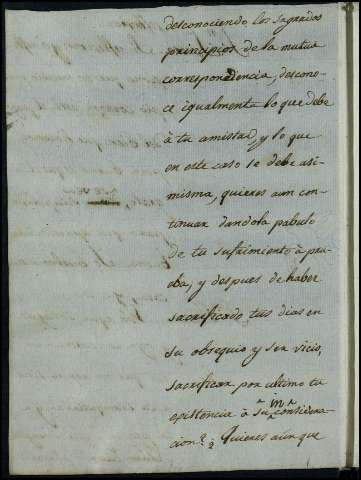 desconociendo los sagrados
principios de la mutua
correspondencia, descono-
ce igualmente lo que debe
à tu amistad, y lo que
en este caso se debe asi-
misma, quieres aun con-
tinuar dandola pabulo
de tu sufrimiento à prue-
ba, y despues de haber
sacrificado tus dias en
su obsequio y servicio,
sacrificar por ultimo tu
existencia à su in considera-
cion? ¿Quieres aùn que